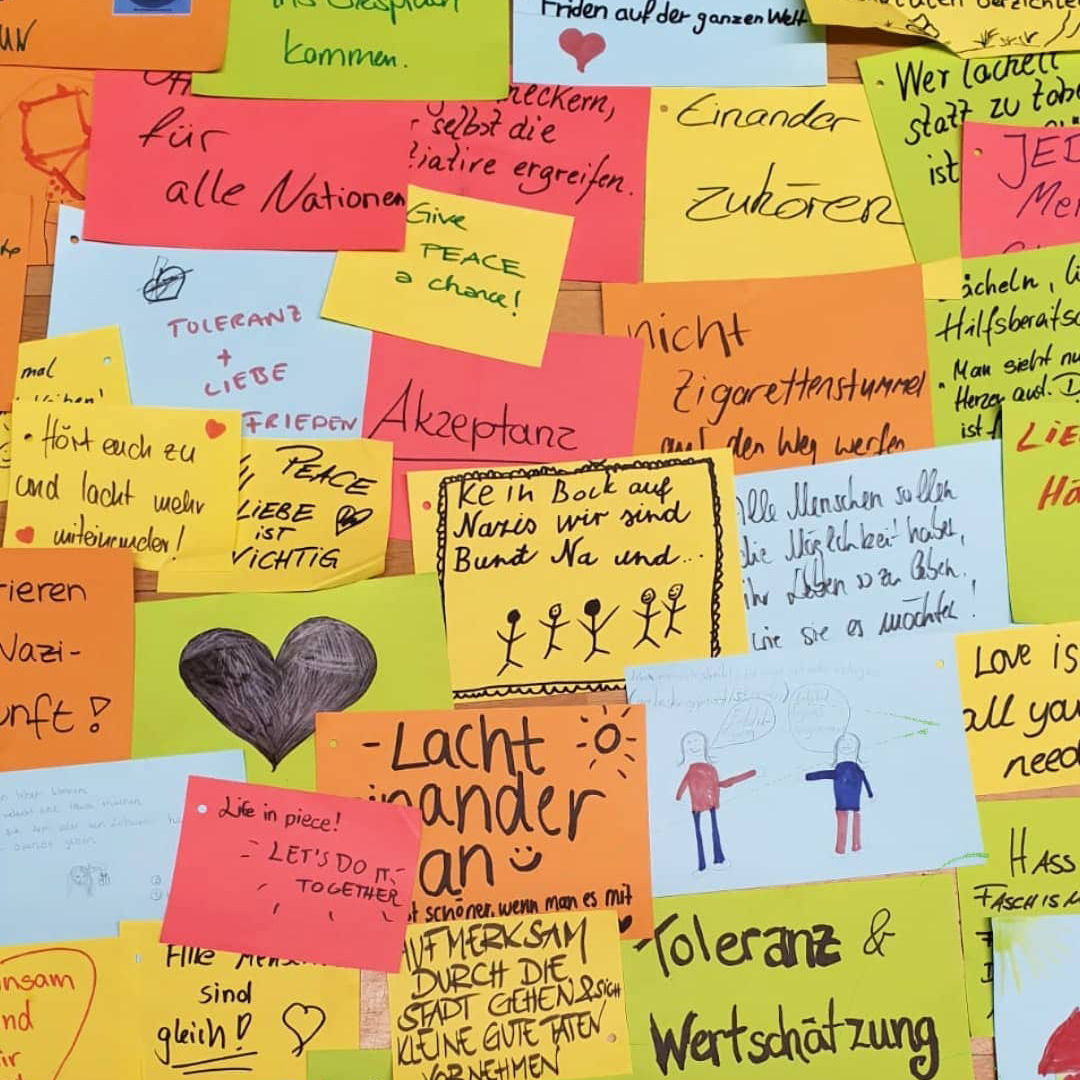 UN
ins Gespräch
kommen.
Frieden auf der ganzen Welt
Wer lächelt
statt zu tobe
ist
für
alle Nationen
meckern,
selbst die
ergreifen.
Einander
zuhören
JED
Me
Give
PEACE
a chance!
TOLERANZ
+
LIEBE
FRIEDEN
Akzeptanz
nicht
Zigarettenstummel
auf den Weg werfen
ächeln, li
Hilfsbereitsc
Man sieht nu
Herzen aus!
ist
LIE
Hä
mal
Hört euch zu
und lacht mehr
miteinander!
PEACE
LIEBE
iST
WICHTIG
Kein Bock auf
Nazis wir sind
Bunt Na und...
Alle Menschen sollen
die Möglichkeit haben,
ihr Leben so zu leben,
wie sie es möchten!
rieren
Nazi-
unft!
Love is
all you
need
- Lacht
einander
an
t schöner, wenn man es mit
Life in piece!
- LET'S DO IT
TOGETHER
HASS
FASCHISM
insam
nd
ir
Alle Mensch
sind
gleich!
AUFMERKSAM
DURCH DIE
STADT GEHEN & SICH
KLEINE GUTE TATEN
VORNEHMEN
Toleranz &
Wertschätzung